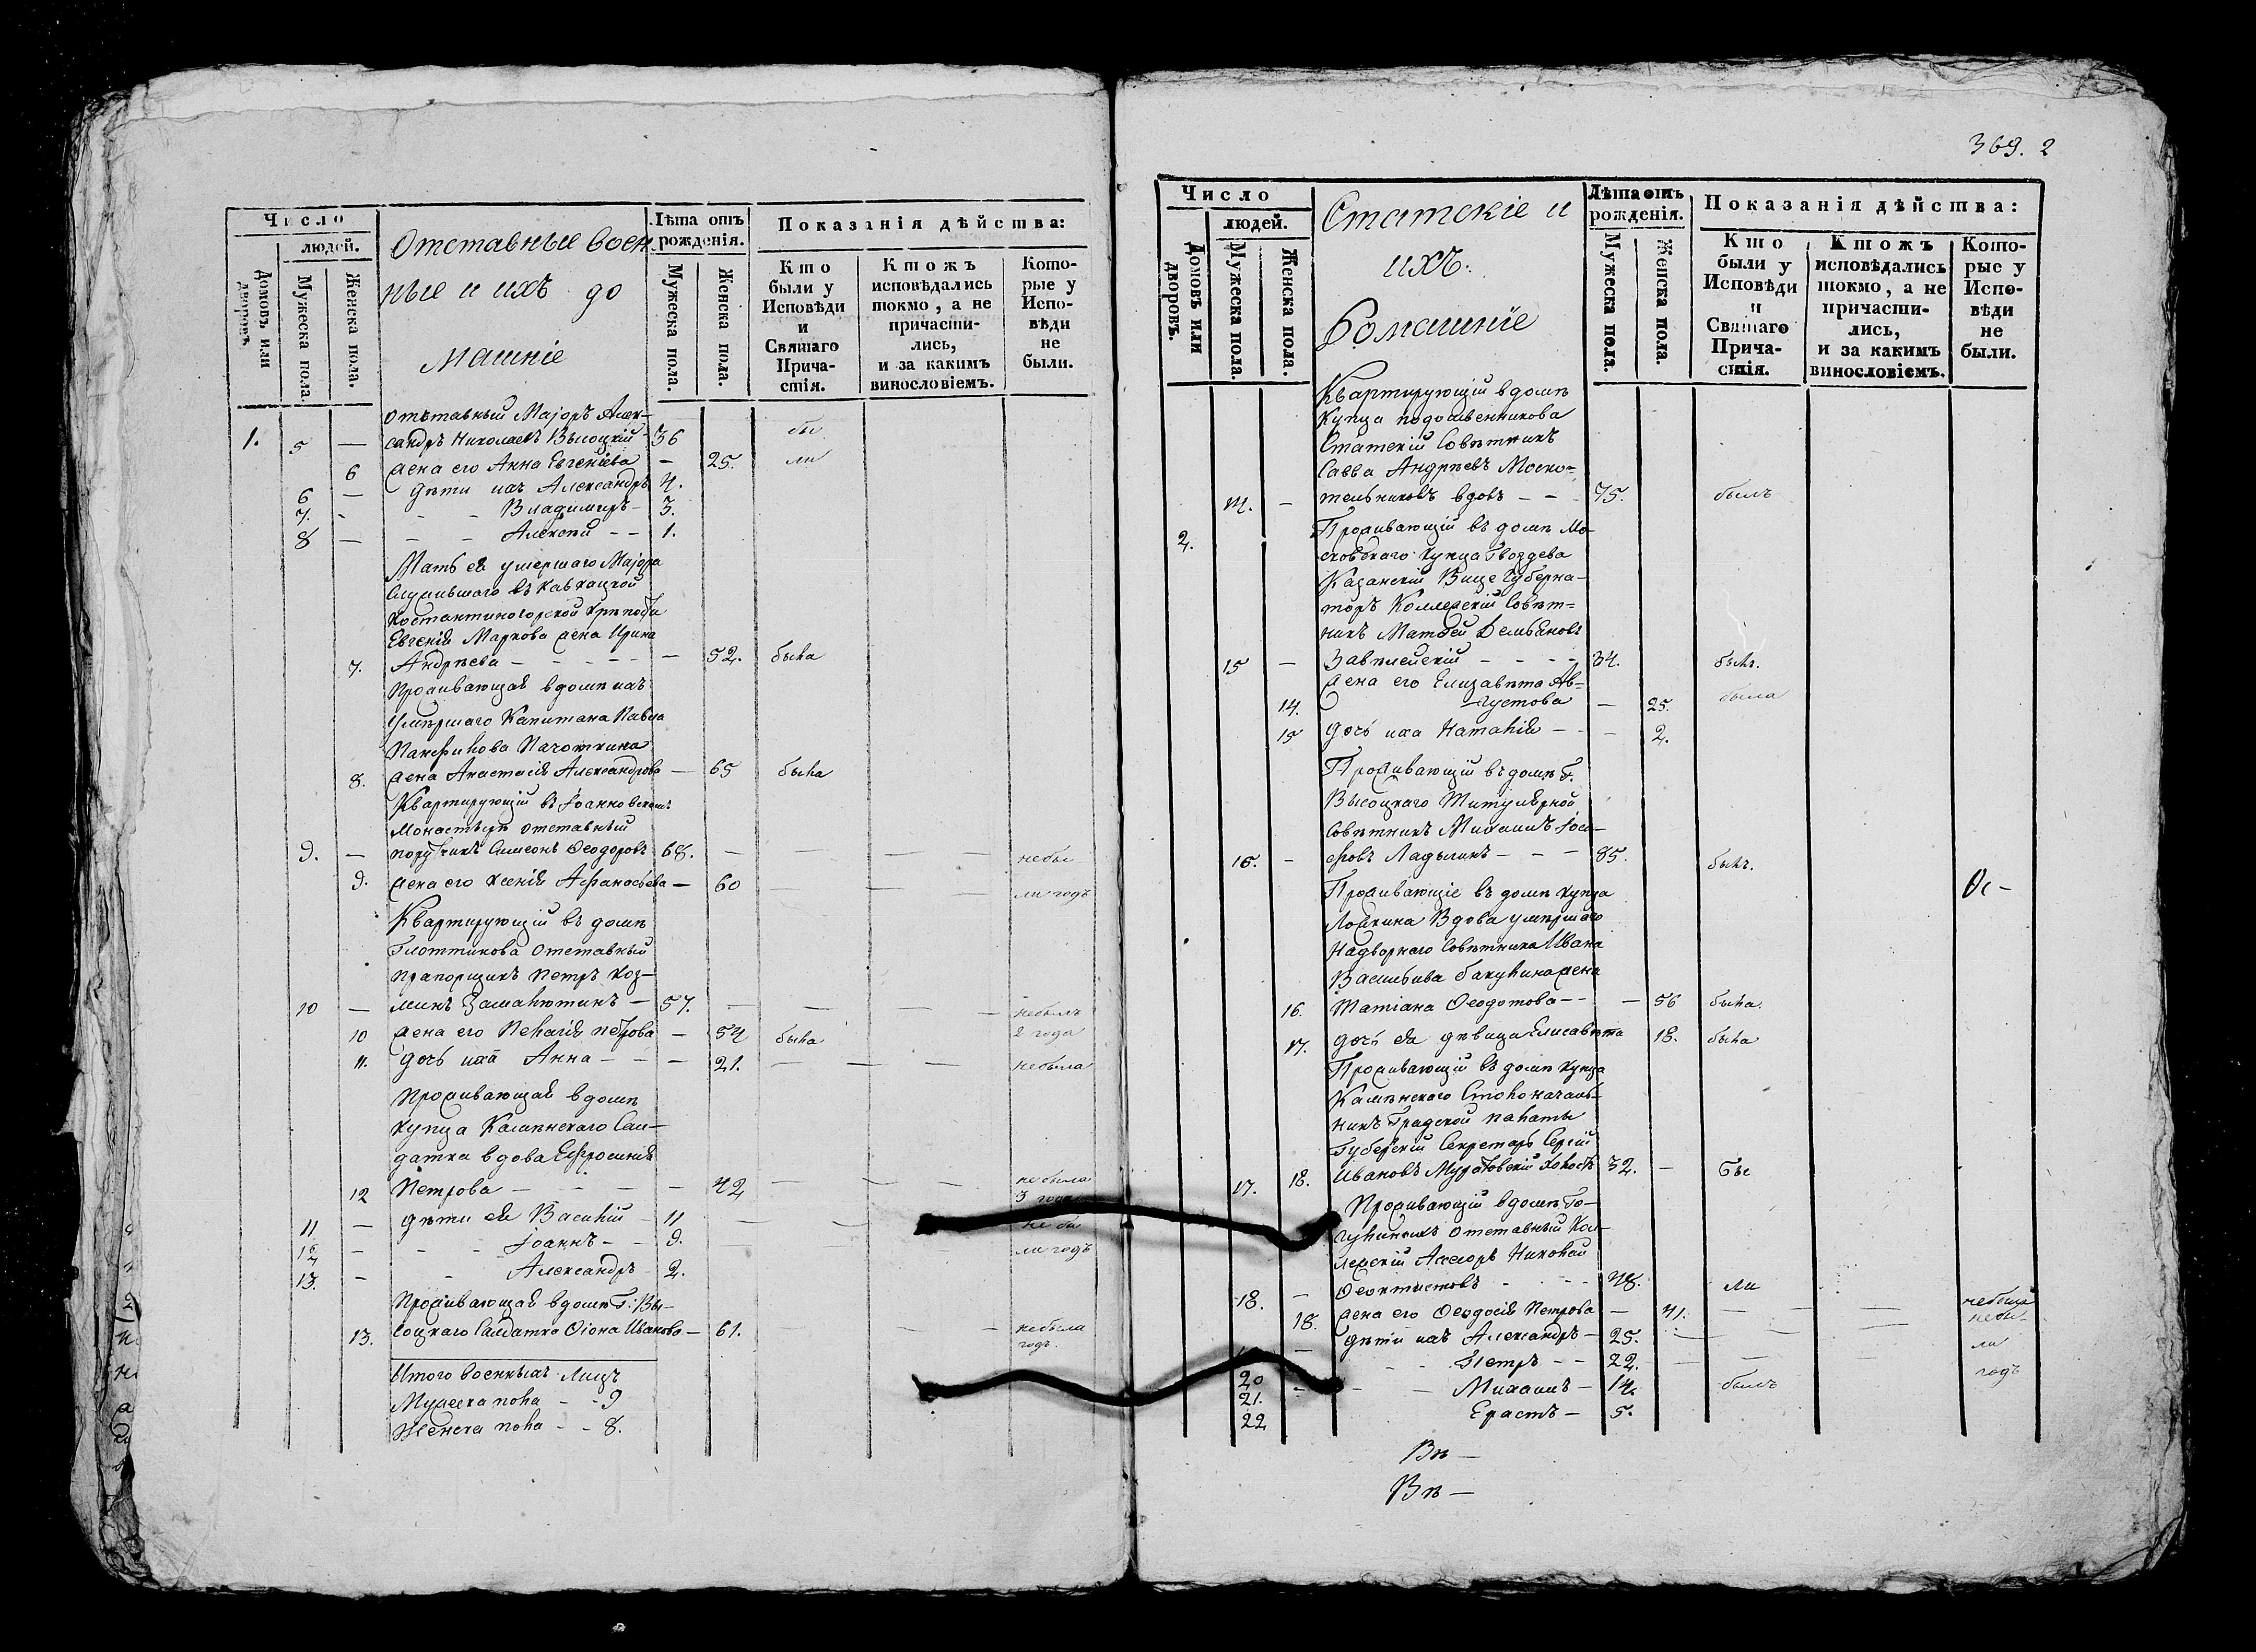 Число
людей.
Домовъ или дворовъ.
Мужеска пола.
Женска пола.
Отставные воен
ные и ихъ до
машніе
Лѣта отъ
рожденія.
Мужеска пола.
Женска пола.
Показанія дѣйства:
Кто
были у
Исповѣди
и
Святаго
Прича-
стія.
Ктожъ
исповѣдались
токмо, а не
причасти-
лись,
и за какимъ
винословіемъ.
Кото-
рые у
Испо-
вѣди
не
были.
Отставный Маіоръ Алек-
1. 5 — сандръ Николаевъ Высоцкій 36 бы
6 жена его Анна Евгеніева — 25. ли
6 — дѣти ихъ Александръ 4.
7. - - - Владимиръ - 3.
8 — - - Алексѣй - - 1.
Мать ея умершаго Маіора
Служившаго въ Кавказской
Костантиногорской крѣпости
Евгенія Маркова жена Ирина
7. Андрѣева - - - - — 52. была
Проживающая в домѣ ихъ
Умершаго Капитана Павла
8. жена Анастасія Александрова — 65 была
Квартирующій въ Іоанновскомъ
Монастырѣ отставный
9. — порутчикъ Симеонъ Ѳеодоровъ 68. — — — — небы
9. жена его Ксенія Афанасьева — 60 — — — ли годъ
Квартирующій въ домѣ
отставный
Прапорщикъ Петръ Коз-
10 — минъ Замаютинъ — 57. — — — — небылъ
10 жена его Пелагія Петрова — 54 была 2 года
11. дочь ихъ Анна - - — 21. — — — небыла
Проживающая в домѣ
купца Каменскаго Сал-
датка вдова Ефросинія
12 Петрова — — — — 42 — — — не была
3 года
11 — дѣти ея Василій - 11 — — не бы
12 - - - Іоаннъ - - 9. — ли годъ
13. - - Александръ - 2.
Проживающая в домѣ Г: Вы-
13. соцкаго Салдатка Ѳіона Иванова — 61. — - небыла
годъ.
Итого военныхъ лицъ
Мужеска пола - - 9
Женска пола - - 8.
369. 2
Число
людей.
Домовъ или дворовъ.
Мужеска пола.
Женска пола.
Статскіе и
ихъ.
Домашніе
Лѣта отъ
рожденія.
Мужеска пола.
Женска пола.
Показанія дѣйства:
Кто
были у
Исповѣди
и
Святаго
Прича-
стія.
Ктожъ
исповѣдались
токмо, а не
причасти-
лись,
и за какимъ
винословіемъ.
Кото-
рые у
Испо-
вѣди
не
были.
Квартирующій в домѣ
Купца подошвенникова
Статскій Совѣтникъ
Савва Андрѣевъ Моско-
14. - тельниковъ вдовъ - - - 75. былъ
2. Проживающій въ домѣ Мо-
сковскаго купца Гвоздева
Казанскій Вице Губерна-
торъ Коллежскій Совѣт-
никъ Матѳей Демьяновъ
15 — Завилейскій - - - - 34. былъ.
жена его Елизавета Ав-
14. густова — 25. была
15 дочь ихъ Наталія - - - 2.
Проживающій въ домѣ Г.
Высоцкаго Титулярной
Совѣтникъ Михаилъ Іоси-
16. - фовъ Ладыгинъ - - - 85. былъ.
Ѳс -
Проживающіе въ домѣ купца
Вдова умершаго
Надворнаго Совѣтника Ивана
Васильева бакунина жена
16. Татіана Ѳеодотова - - — 56 была.
17. дочь ея дѣвица Елисавета 18. была
Проживающій въ домѣ купца
Каменскаго Столоначаль-
никъ Градской палаты
Губерскій Секретарь Сергій
17. 18. Ивановъ Муратовскій холостъ 32. — бы
Проживающій в домѣ Го-
отставный Кол-
лежскій Ассесоръ Николай
18. — Ѳеоктистовъ - - - 48. ли
18. жена его Ѳеодосія Петрова — 41. — — — небыла
— дѣти ихъ Александръ - 25. — — — небы-
20 - - Петръ - - 22. — — — ли
21. - - — Михаилъ - 14. былъ годъ
22 Ерастъ - 5.
Вѣ —
Вѣ —